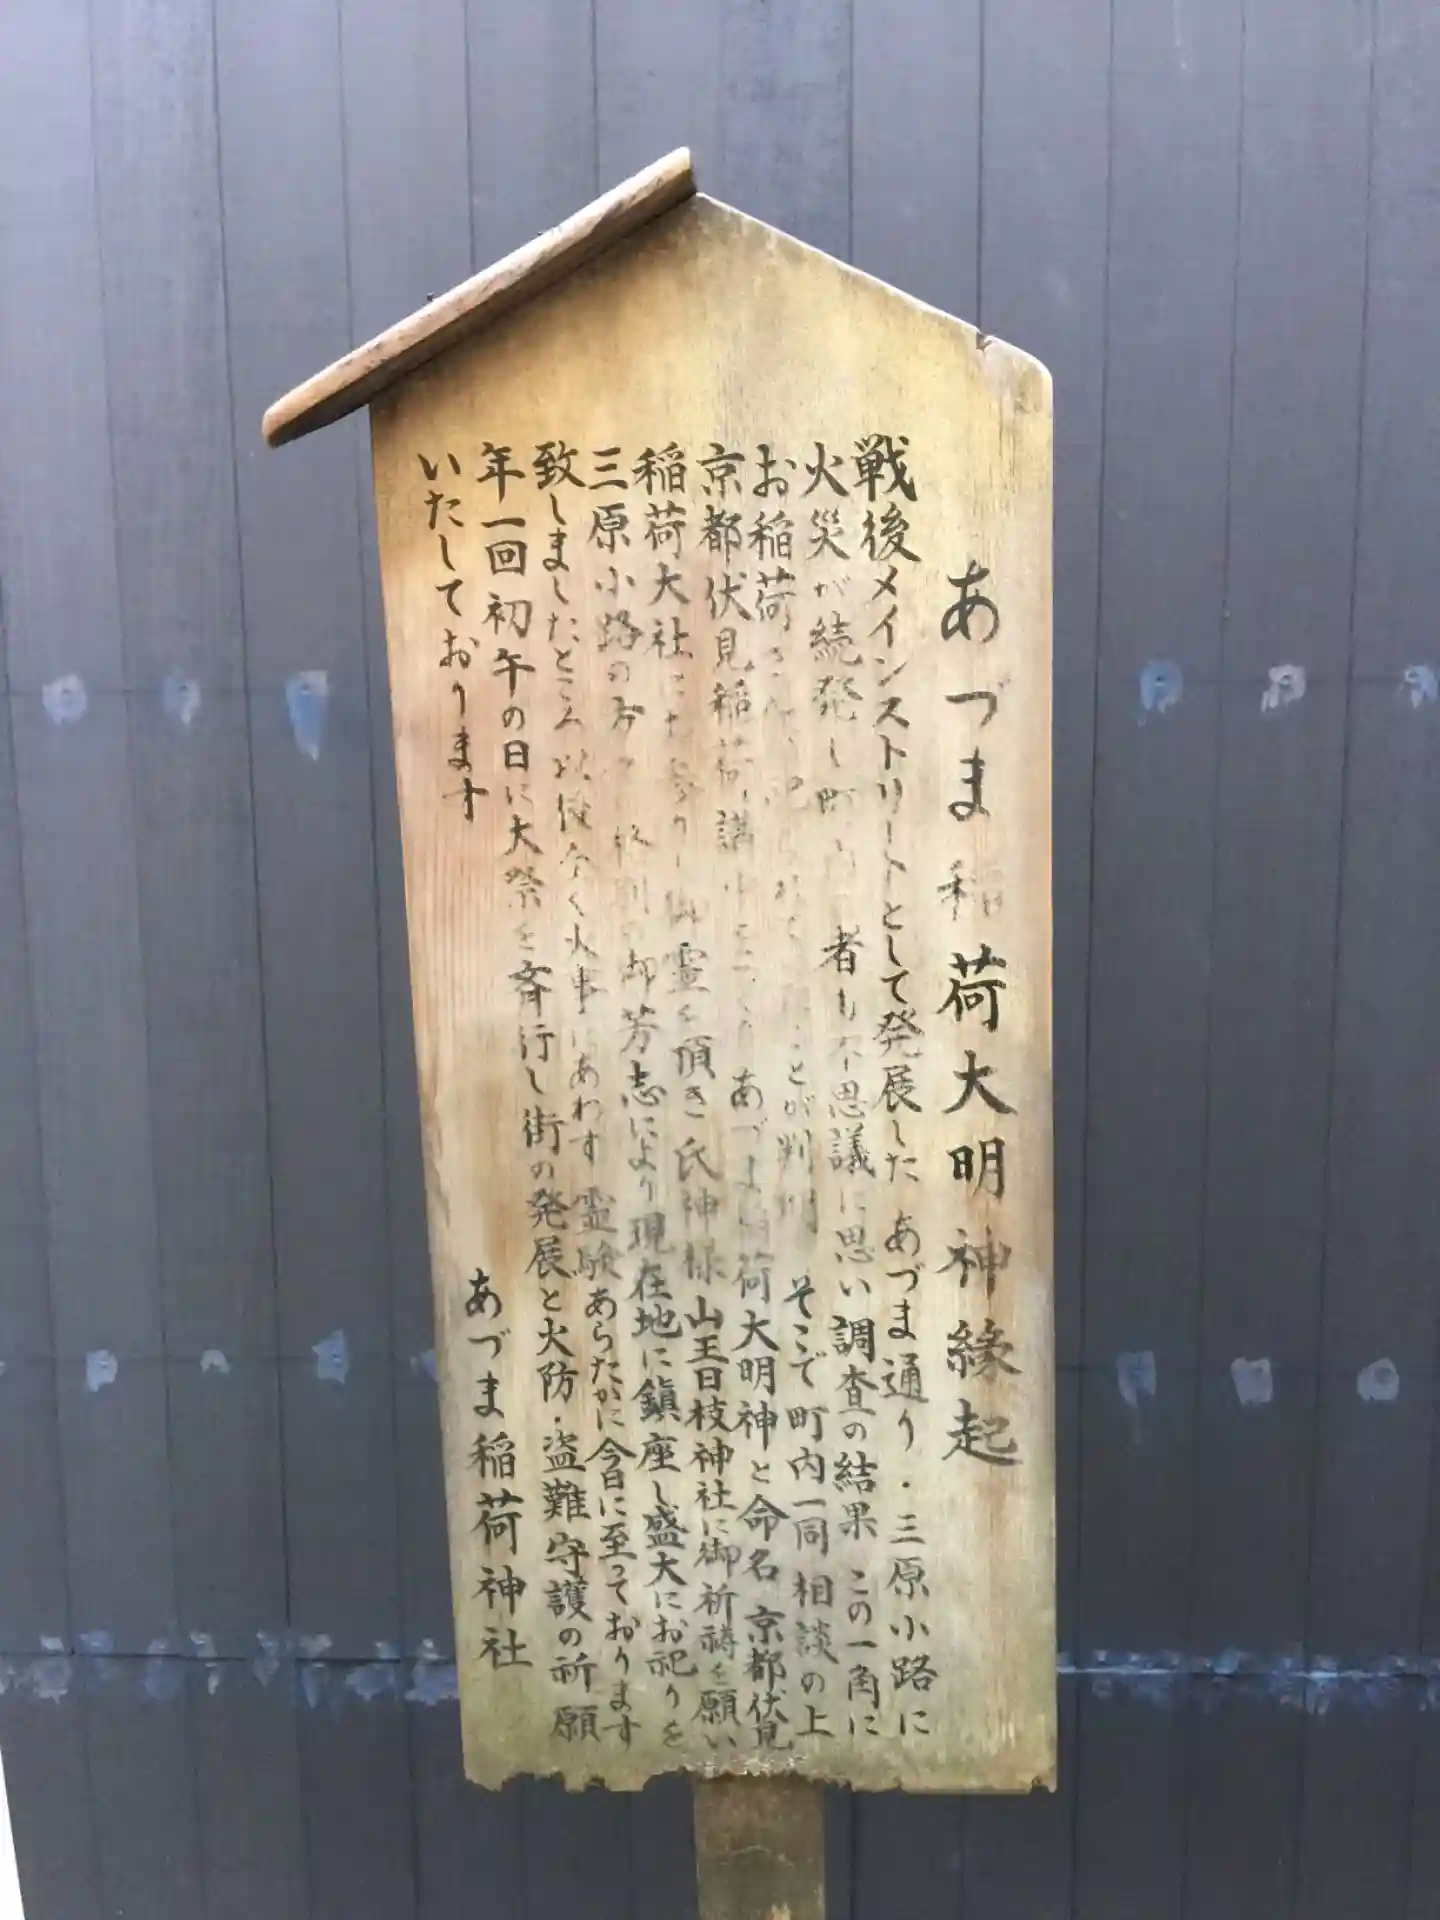 あづま稲荷大明神縁起
戦後メインストリートとして発展した あづま通り・三原小路に
火災が続発し町内 者も不思議に思い調査の結果 この一角に
お稲荷さんが祀られて ことが判明 そこで町内一同相談の上
京都伏見稲荷講 あづま稲荷大明神と命名 京都伏見
稲荷大社にお参りし御霊を頂き 氏神様 山王日枝神社に御祈祷を願い
三原小路の 特別の御芳志により現在地に鎮座し盛大にお祀りを
致しましたところ以後全く火事にあわず 霊験あらたかに今日に至っております
年一回初午の日に大祭を斉行し街の発展と火防・盗難守護の祈願
いたしております
あづま稲荷神社